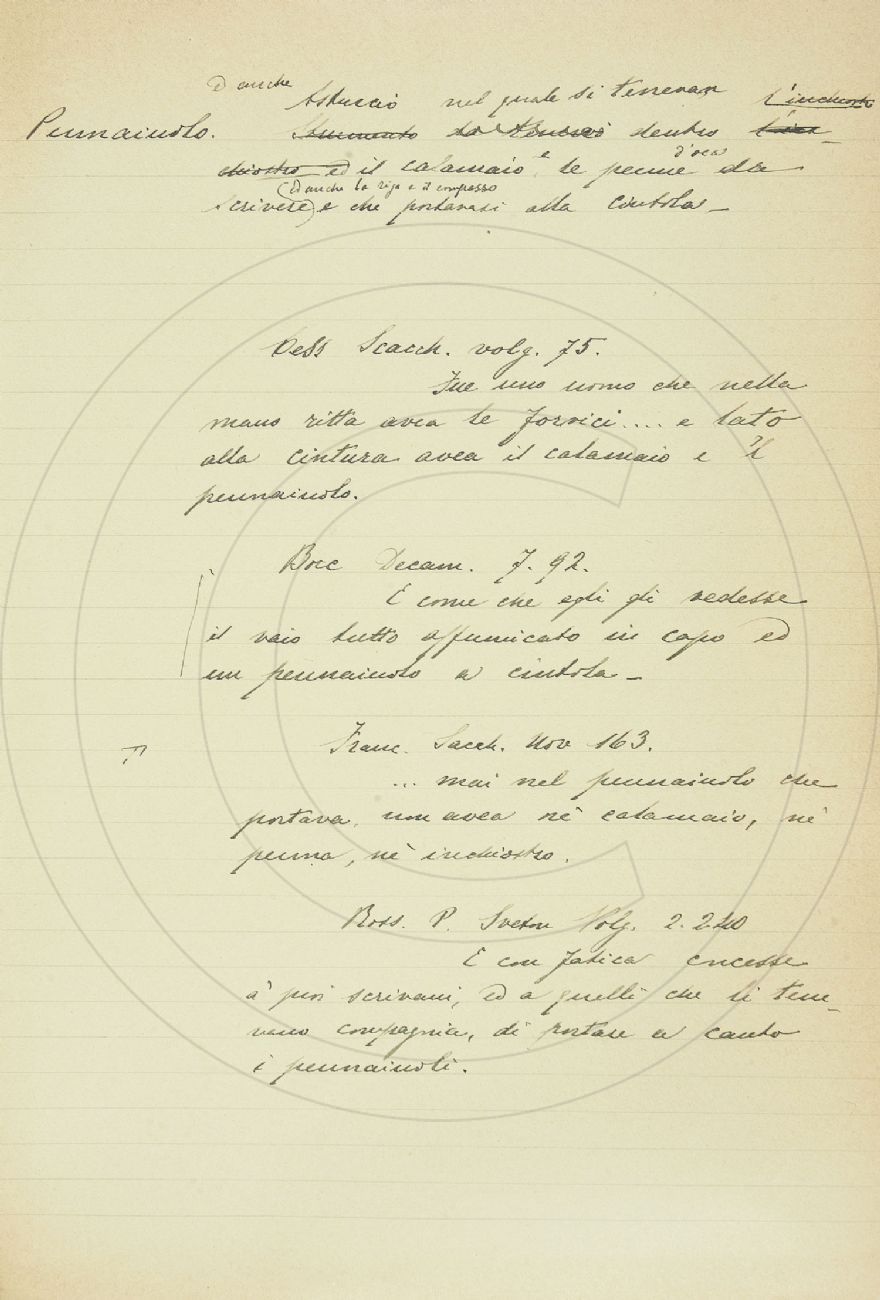 ed anche
Astuccio nel quale si tenevan l'inchiostro
Pennaiuolo. Strumento da tenersi dentro l'in-
chiostro ed il calamaio e le penne d'oca da
(ed anche la riga e il compasso
scrivere) e che portavasi alla cintola —
Cess Scacch. volg. 75.
Fue uno uomo che nella
mano ritta avea le forvici.... e lato
alla cintura avea il calamaio e 'l
pennaiuolo.
Bocc Decam. 7. 92.
E come che egli gli vedesse
il vaio tutto affumicato in capo ed
un pennaiuolo a cintola —
Franc. Sacch. Nov 163.
... mai nel pennaiuolo che
portava, non avea nè calamaio, nè
penna, nè inchiostro.
Ross. P. Sveton Volg. 2. 240
E con fatica concesse
a' piri scrivani, ed a quelli che li tene-
vano compagnia, di portare a canto
i pennaiuoli.